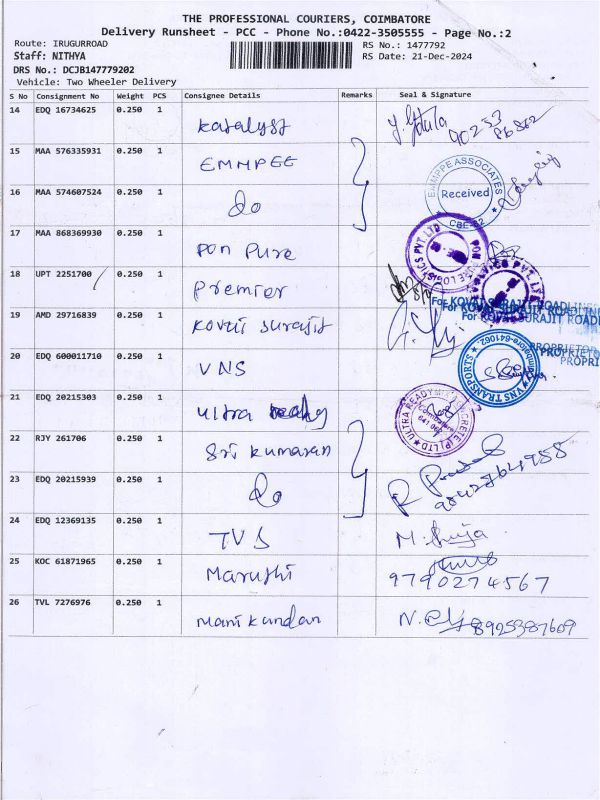 THE PROFESSIONAL COURIERS, COIMBATORE
Delivery Runsheet - PCC - Phone No.:0422-3505555 - Page No.:2
Route: IRUGURROAD
RS No.: 1477792
Staff: NITHYA
RS Date: 21-Dec-2024
DRS No.: DCJB147779202
Vehicle: Two Wheeler Delivery
S No Consignment No Weight PCS Consignee Details Remarks Seal & Signature
14 EDQ 16734625 0.250 1 Katalyst
15 MAA 576335931 0.250 1 EMMPEE
EMMPPE ASSOCIATES
Received
16 MAA 574607524 0.250 1 do
17 MAA 868369930 0.250 1 Pon Pure
18 UPT 2251700 0.250 1 Premier
For KOVAI SURAJIT ROADLINES
19 AMD 29716839 0.250 1 Kovai Surajit
For KOVAI SURAJIT ROADLI
PROPRIETO
20 EDQ 600011710 0.250 1 VNS
VNS TRANSPORTS
21 EDQ 20215303 0.250 1 Ultra ready
ULTRA READYMIX CONCRETE (P) LTD
22 RJY 261706 0.250 1 Sri Kumaran
23 EDQ 20215939 0.250 1 do
24 EDQ 12369135 0.250 1 TVS
25 KOC 61871965 0.250 1 Marushi 9790274567
26 TVL 7276976 0.250 1 Manikandan 8925387609